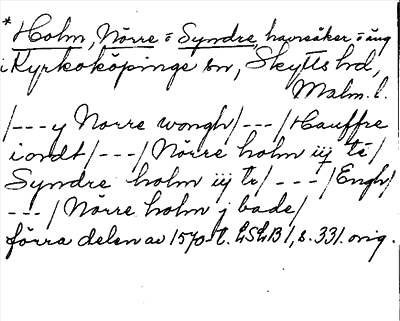 * Holm, Nörre o Syndre, havreåker o äng
i Kyrkoköpinge sn, Skytts hd,
Malm. l.
/--- y Norre wongh/---/Hauffre
iordt/---/Nörre holm iij te/
Syndre holm iij te/---/Engh/
---/Nörre holm j bade/
förra delen av 1570-t. LSLB 1, s. 331. orig.